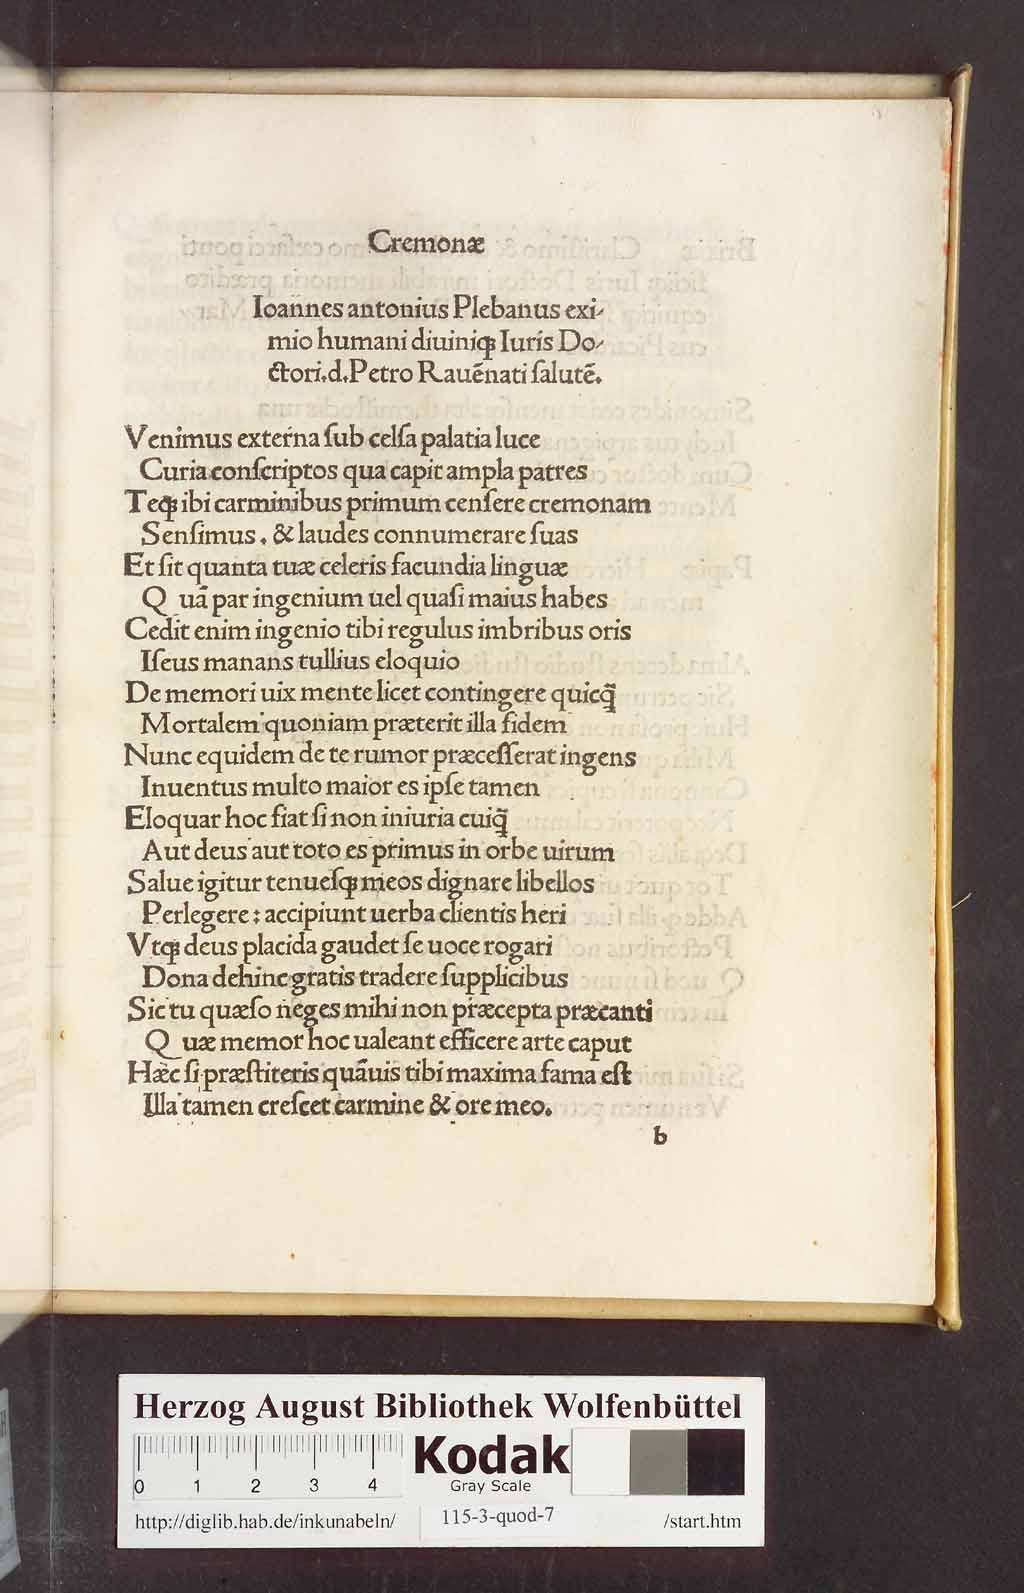 Cremonæ
Ioannes antonius Plebanus exi-
mio humani diuiniqꝫ Iuris Do-
ctori.d.Petro Rauēnati ſalutē.
Venimus externa ſub celſa palatia luce
Curia conſcriptos qua capit ampla patres
Teqꝫ ibi carminibus primum cenſere cremonam
Senſimus . & laudes connumerare ſuas
Et ſit quanta tuæ celeris facundia linguæ
Q uā par ingenium uel quaſi maius habes
Cedit enim ingenio tibi regulus imbribus oris
Iſeus manans tullius eloquio
De memori uix mente licet contingere quicq̄
Mortalem quoniam præterit illa fidem
Nunc equidem de te rumor præceſſerat ingens
Inuentus multo maior es ipſe tamen
Eloquar hoc fiat ſi non iniuria cuiq̄
Aut deus aut toto es primus in orbe uirum
Salue igitur tenueſqꝫ meos dignare libellos
Perlegere : accipiunt uerba clientis heri
Vtqꝫ deus placida gaudet ſe uoce rogari
Dona dehinc gratis tradere ſupplicibus
Sic tu quæſo neges mihi non præcepta præcanti
Q uæ memor hoc ualeant efficere arte caput
Hæc ſi præſtiteris quāuis tibi maxima fama eſt
Illa tamen creſcet carmine & ore meo.
b
Herzog August Bibliothek Wolfenbüttel
0 1 2 3 4
Kodak
Gray Scale
http://diglib.hab.de/inkunabeln/ 115-3-quod-7 /start.htm